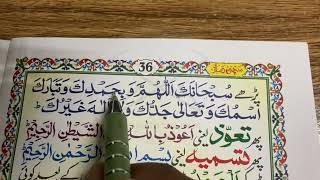 36
پڑھے سُبْحَانَكَ اللّٰهُمَّ وَبِحَمْدِكَ وَتَبَارَكَ
اسْمُكَ وَتَعَالٰى جَدُّكَ وَلَا اِلٰهَ غَيْرُكَ
پھر تعوّذ یعنی اَعُوْذُ بِاللّٰهِ مِنَ الشَّيْطٰنِ الرَّجِيْمِ
پھر تسمیہ یعنی بِسْمِ اللّٰهِ الرَّحْمٰنِ الرَّحِيْمِ